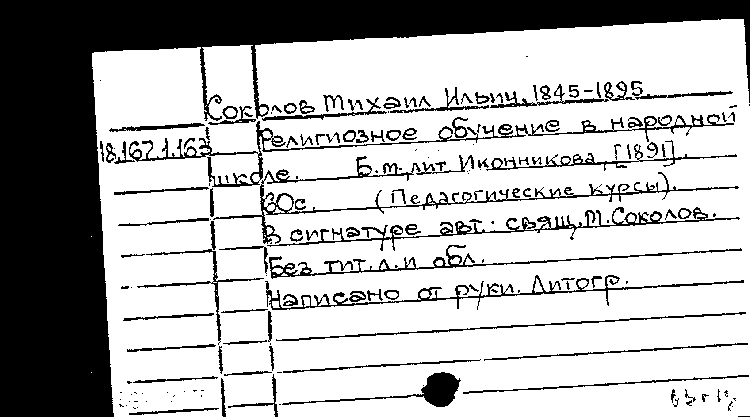 Соколов Михаил Ильич, 1845-1895.
18.167.1.163 Религиозное обучение в народной
школе. Б.м., лит. Иконникова, [1891].
30с. (Педагогические курсы).
В сигнатуре авт.: свящ. М. Соколов.
Без тит. л. и обл.
Написано от руки. Литогр.